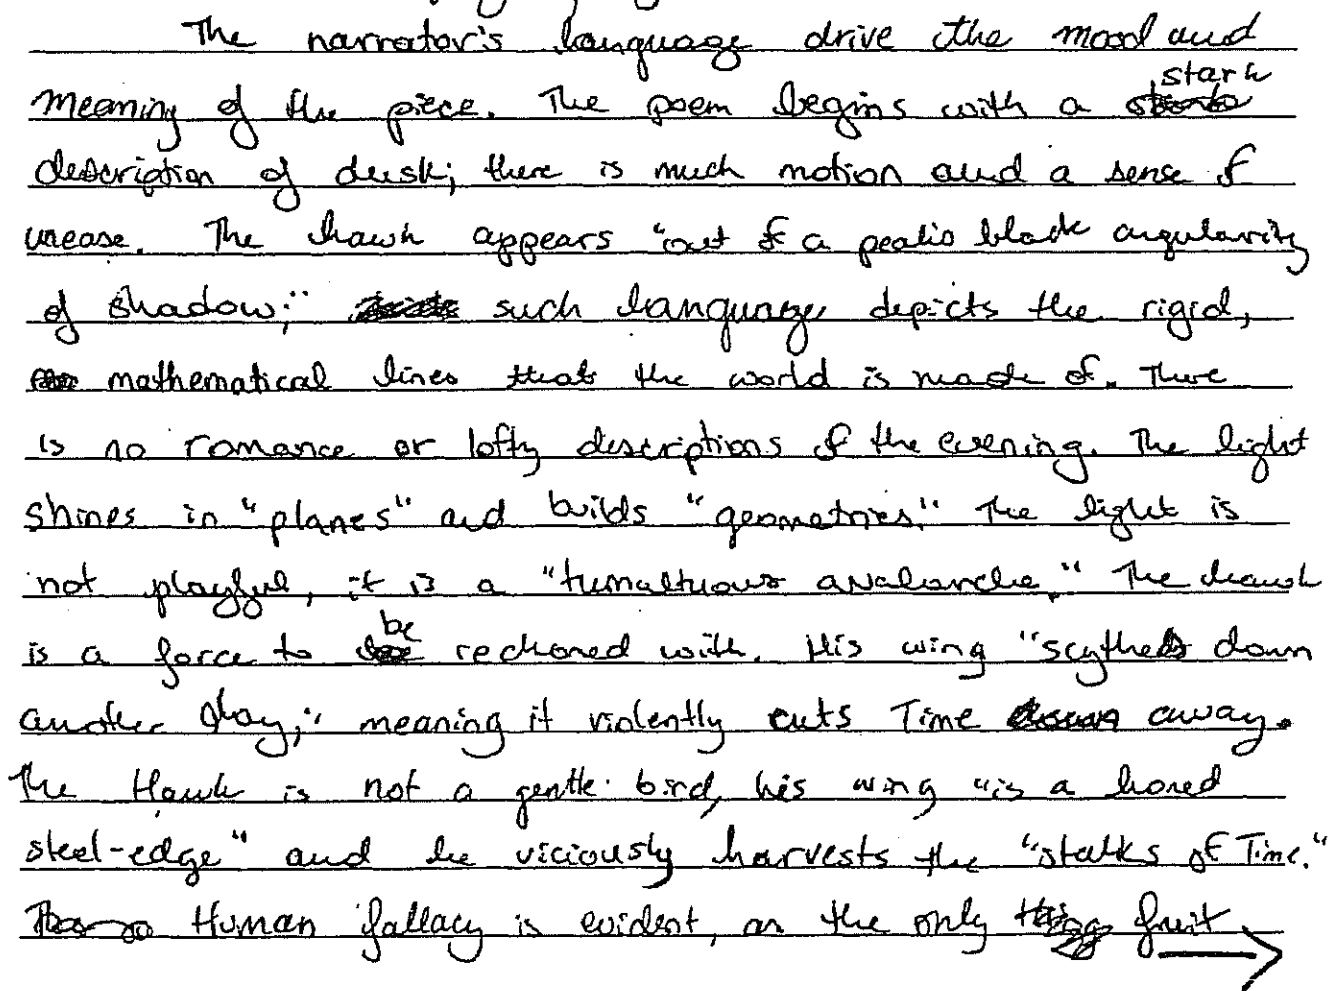 The narrator's language drive the mood and
meaning of the piece. The poem begins with a stark
description of dusk; there is much motion and a sense of
unease. The hawk appears "out of a peaks black angularity
of shadow;" such language depicts the rigid,
mathematical lines that the world is made of. There
is no romance or lofty descriptions of the evening. The light
shines in "planes" and builds "geometries." The light is
not playful, it is a "tumultuous avalanche." The hawk
is a force to be reckoned with. His wing "scythes down
another day;" meaning it violently cuts Time away.
The Hawk is not a gentle bird, his wing "is a honed
steel-edge" and he viciously harvests the "stalks of Time."
Human fallacy is evident, as the only fruit